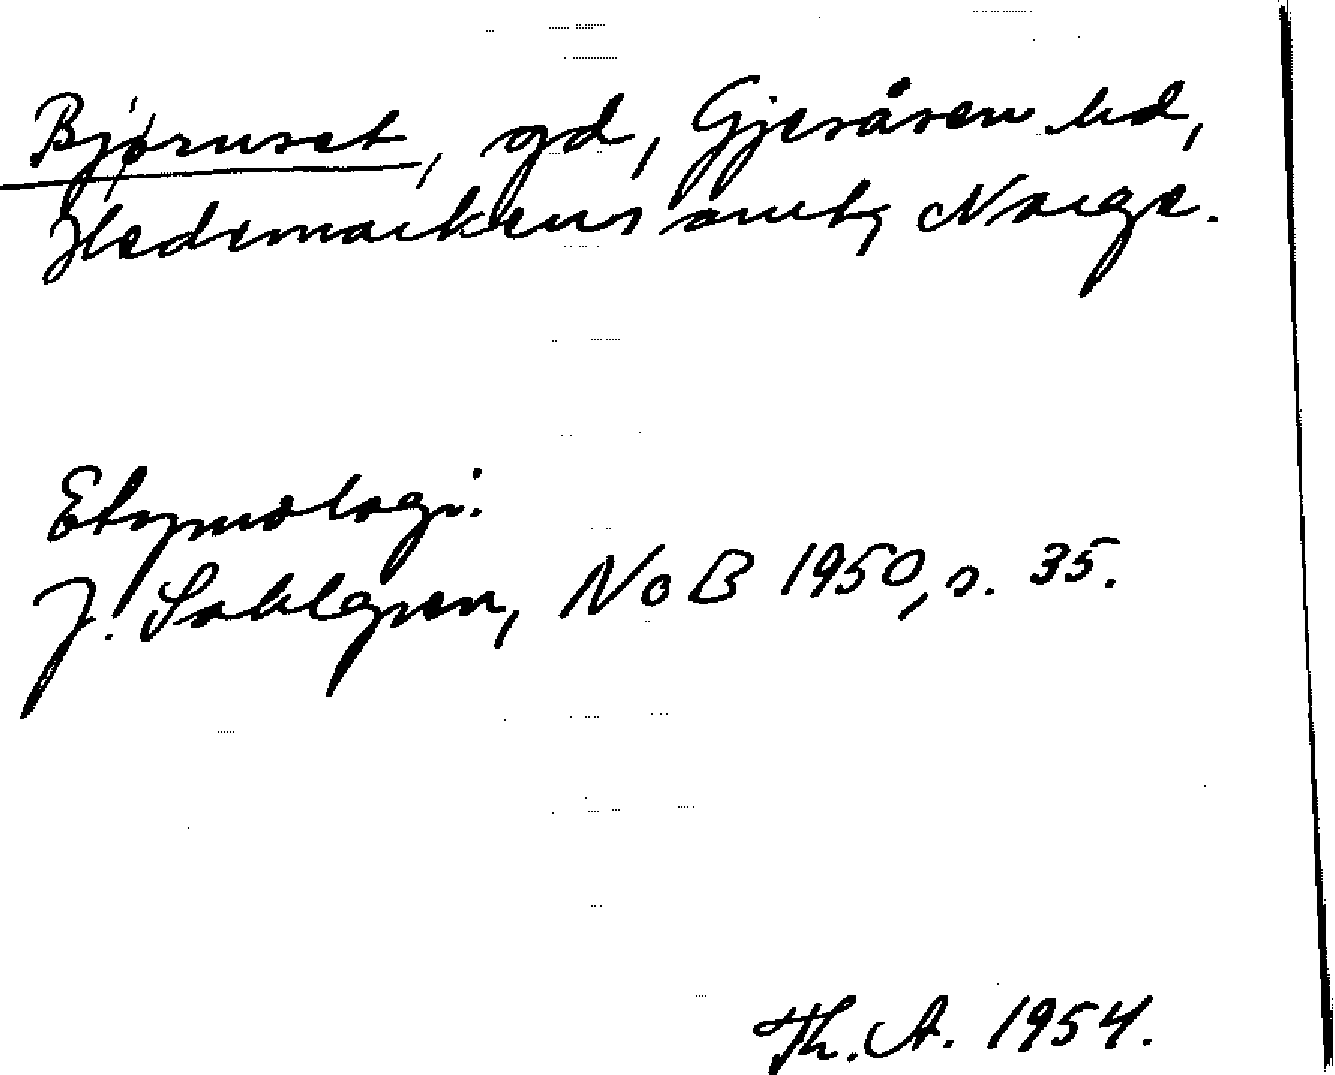 Bjørnset, gd, Gjesåsen hd,
Hedemarkens amt, Norge.
Etymologi.
J. Sahlgren, NoB 1950, s. 35.
Th. A. 1954.